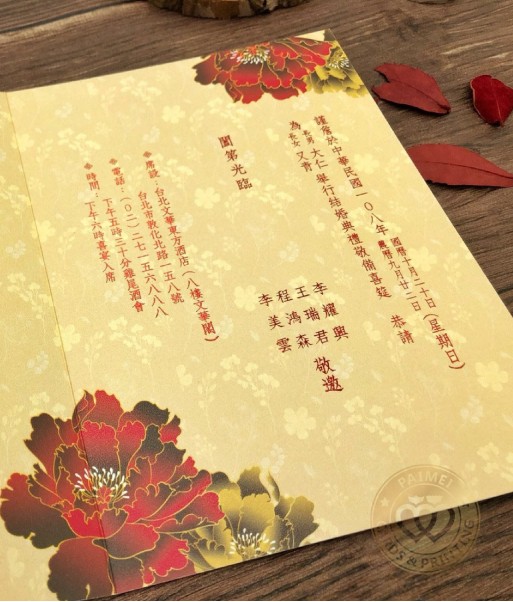 謹詹於中華民國一０八年國曆十月二十日農曆九月廿二日(星期日)
為長男大仁長女又青舉行結婚典禮敬備喜筵 恭請
闔第光臨
李耀興
王瑞君
程鴻森
李美雲
敬邀
◆席設：台北文華東方酒店(八樓文華閣)
台北市敦化北路一五八號
◆電話：(０二)二七一五六八八八
◆時間：下午五時三十分雞尾酒會
下午六時喜宴入席
PAIMEI
DS & PRINTING